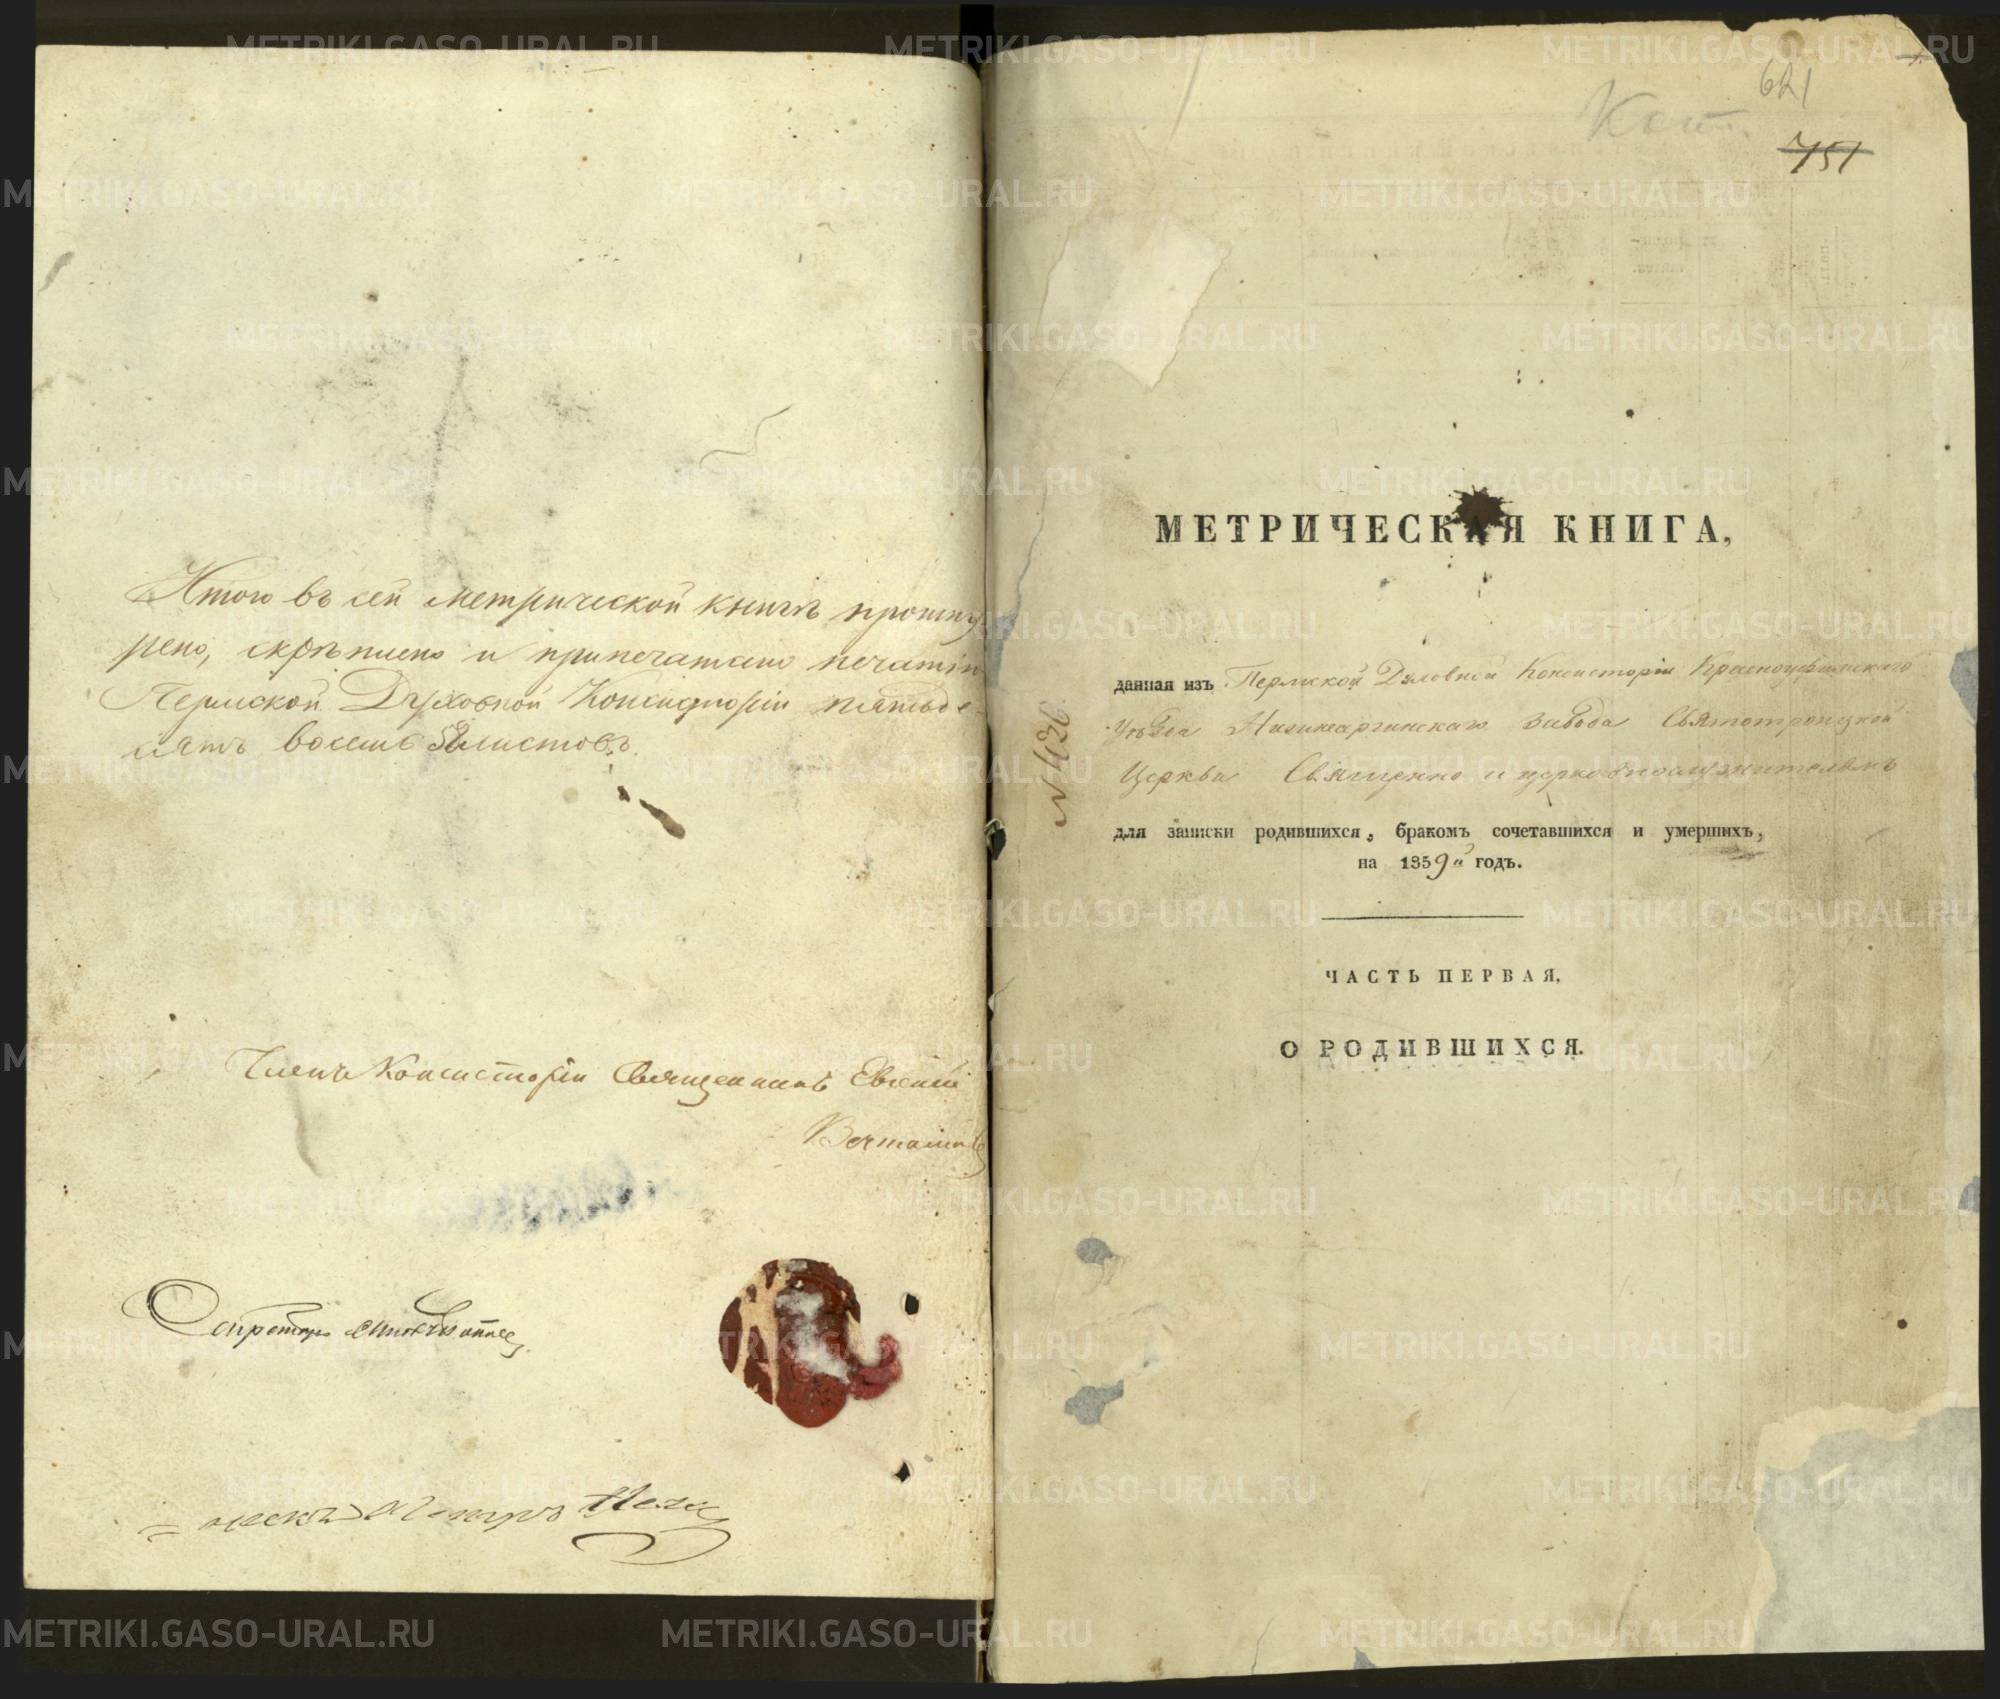 Итого въ сей метрической книгѣ прошну
рено, скрѣплено и припечатано печатію
Пермской Духовной Консисторіи пятьде-
сятъ восемь 58 листовъ.
Членъ Консисторіи Священникъ Евгеній
Секретарь
Петръ
621
751
№ 426
МЕТРИЧЕСКАЯ КНИГА,
данная изъ Пермской Духовной Консисторіи Красноуфимскаго
Уѣзда Нижнесергинскаго завода Святотроицкой
Церкви Священно и церковнослужителямъ
для записки родившихся, бракомъ сочетавшихся и умершихъ,
на 1859й годъ.
ЧАСТЬ ПЕРВАЯ,
О РОДИВШИХСЯ.
METRIKI.GASO-URAL.RU